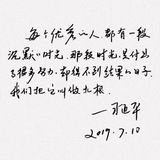 每个优秀的人,都有一段
沉默的时光,那段时光,是付出
了很多努力,却得不到结果的日子,
我们把它叫做扎根
2019.7.10